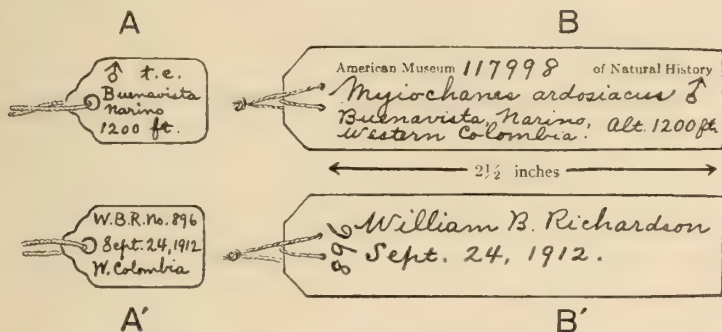 A
B
♂ t.e.
Buenavista
Narino
1200 ft.
American Museum 117998 of Natural History
Myiochanes ardosiacus ♂
Buenavista, Narino, Alt. 1200 ft
Western Colombia.
2½ inches
W.B.R. No. 896
Sept. 24, 1912
W. Colombia
896
William B. Richardson
Sept. 24, 1912.
A'
B'